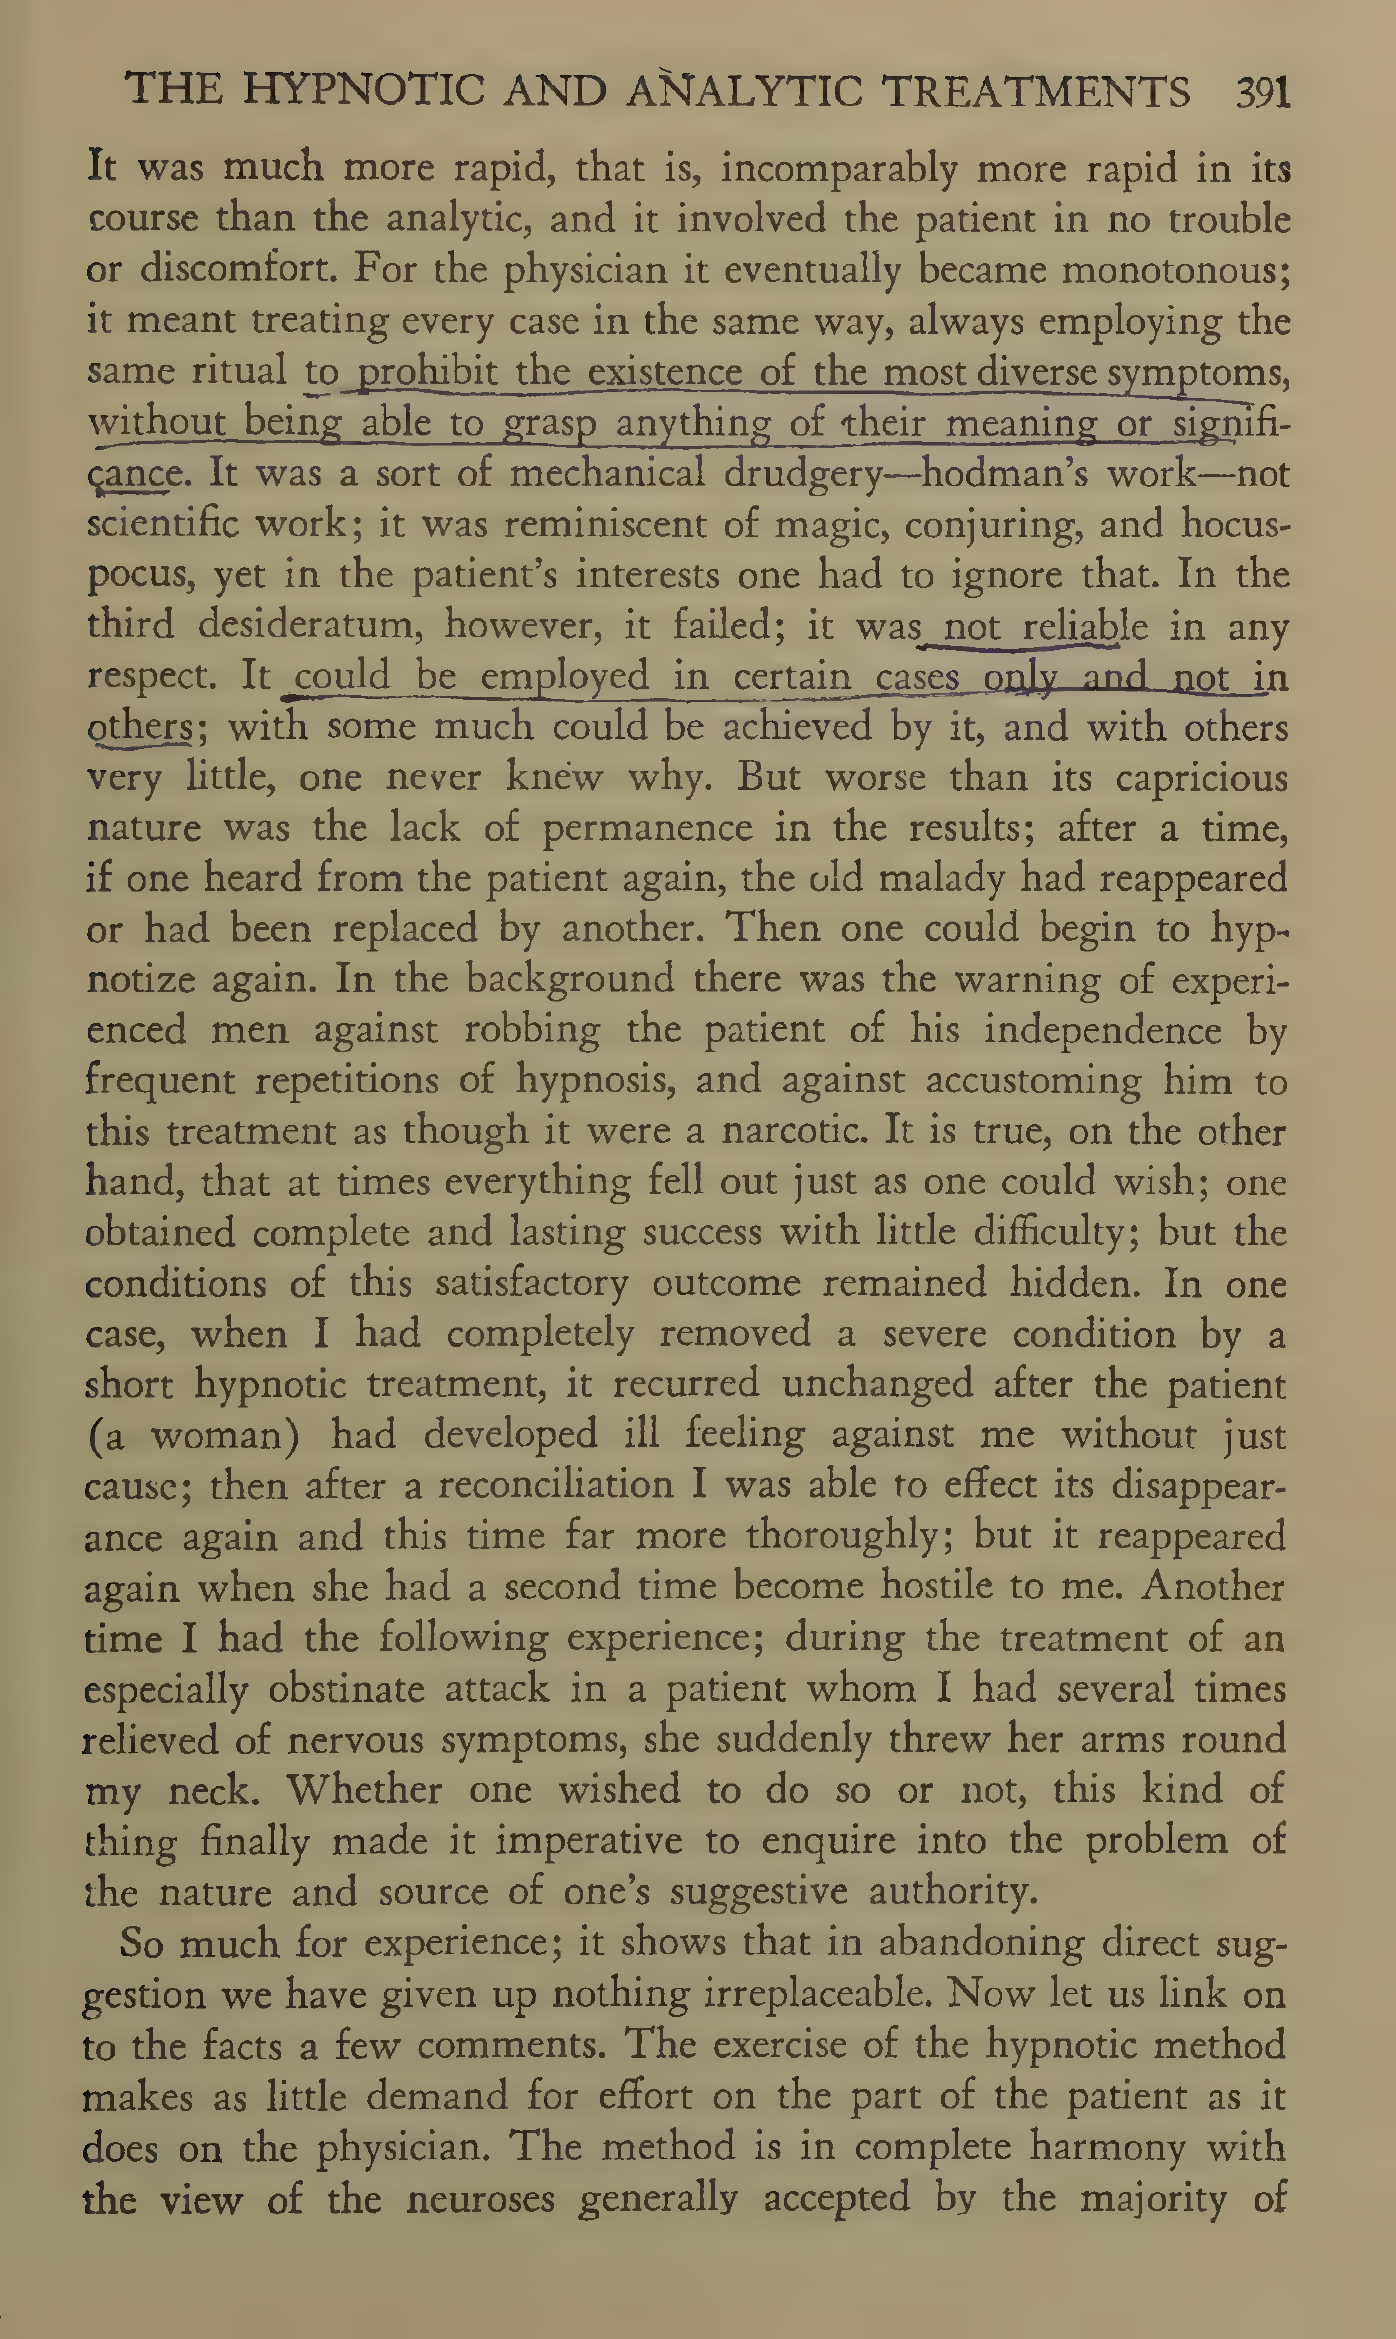 THE HYPNOTIC AND ANALYTIC TREATMENTS 391
It was much more rapid, that is, incomparably more rapid in its
course than the analytic, and it involved the patient in no trouble
or discomfort. For the physician it eventually became monotonous;
it meant treating every case in the same way, always employing the
same ritual to prohibit the existence of the most diverse symptoms,
without being able to grasp anything of their meaning or signifi-
cance. It was a sort of mechanical drudgery—hodman's work—not
scientific work; it was reminiscent of magic, conjuring, and hocus-
pocus, yet in the patient's interests one had to ignore that. In the
third desideratum, however, it failed; it was not reliable in any
respect. It could be employed in certain cases only and not in
others; with some much could be achieved by it, and with others
very little, one never knew why. But worse than its capricious
nature was the lack of permanence in the results; after a time,
if one heard from the patient again, the old malady had reappeared
or had been replaced by another. Then one could begin to hyp-
notize again. In the background there was the warning of experi-
enced men against robbing the patient of his independence by
frequent repetitions of hypnosis, and against accustoming him to
this treatment as though it were a narcotic. It is true, on the other
hand, that at times everything fell out just as one could wish; one
obtained complete and lasting success with little difficulty; but the
conditions of this satisfactory outcome remained hidden. In one
case, when I had completely removed a severe condition by a
short hypnotic treatment, it recurred unchanged after the patient
(a woman) had developed ill feeling against me without just
cause; then after a reconciliation I was able to effect its disappear-
ance again and this time far more thoroughly; but it reappeared
again when she had a second time become hostile to me. Another
time I had the following experience; during the treatment of an
especially obstinate attack in a patient whom I had several times
relieved of nervous symptoms, she suddenly threw her arms round
my neck. Whether one wished to do so or not, this kind of
thing finally made it imperative to enquire into the problem of
the nature and source of one's suggestive authority.
So much for experience; it shows that in abandoning direct sug-
gestion we have given up nothing irreplaceable. Now let us link on
to the facts a few comments. The exercise of the hypnotic method
makes as little demand for effort on the part of the patient as it
does on the physician. The method is in complete harmony with
the view of the neuroses generally accepted by the majority of